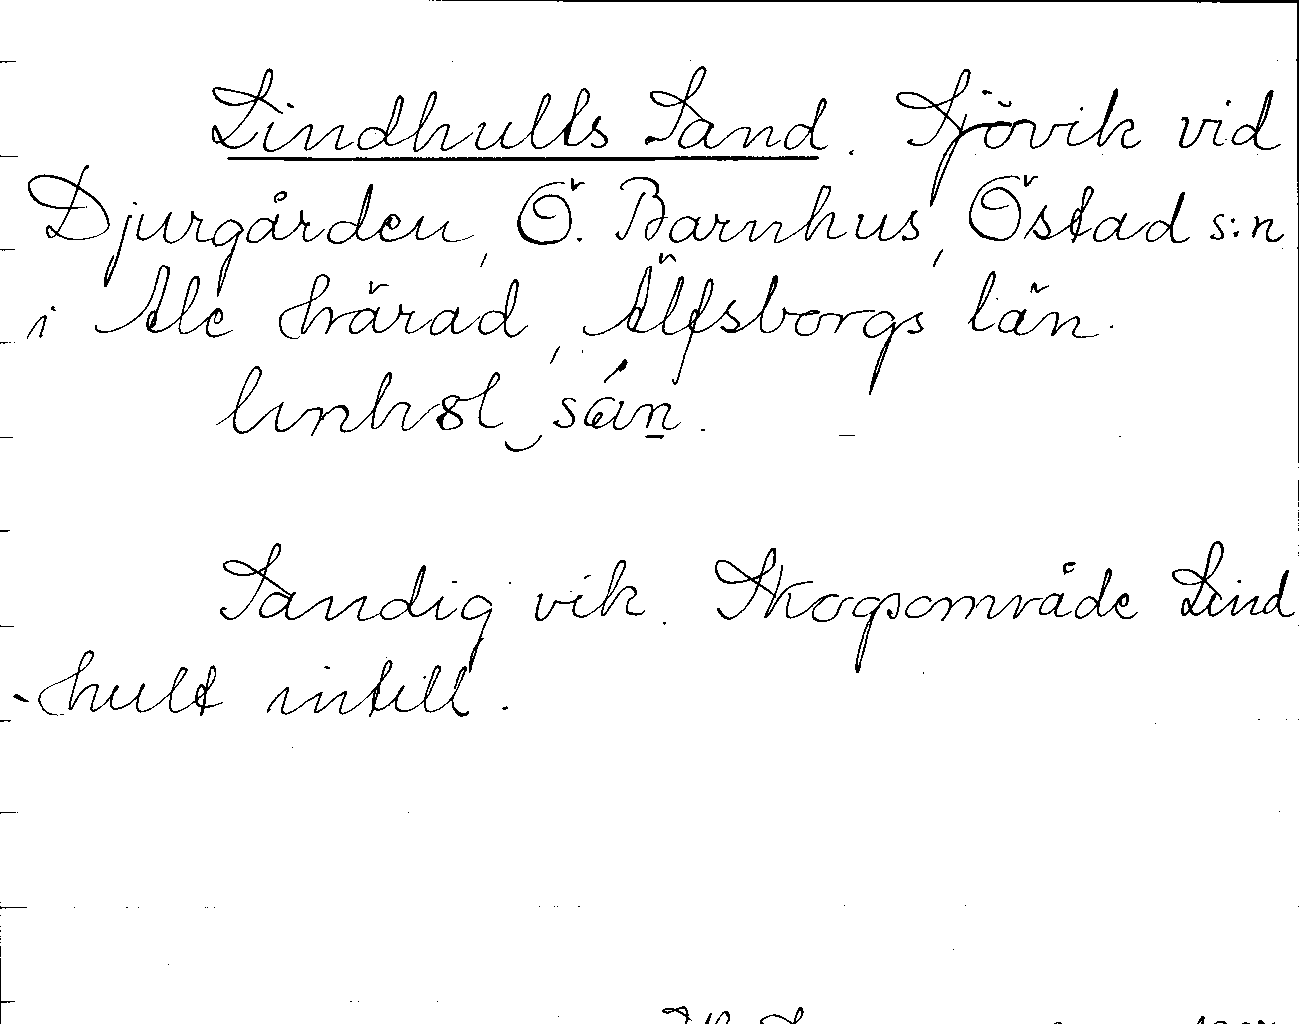 Lindhults Sand. Sjövik vid
Djurgården, Ö. Barnhus, Östad s:n
i Ale härad, Älfsborgs län.
Sandig vik. Skogsområde Lind
-hult intill.